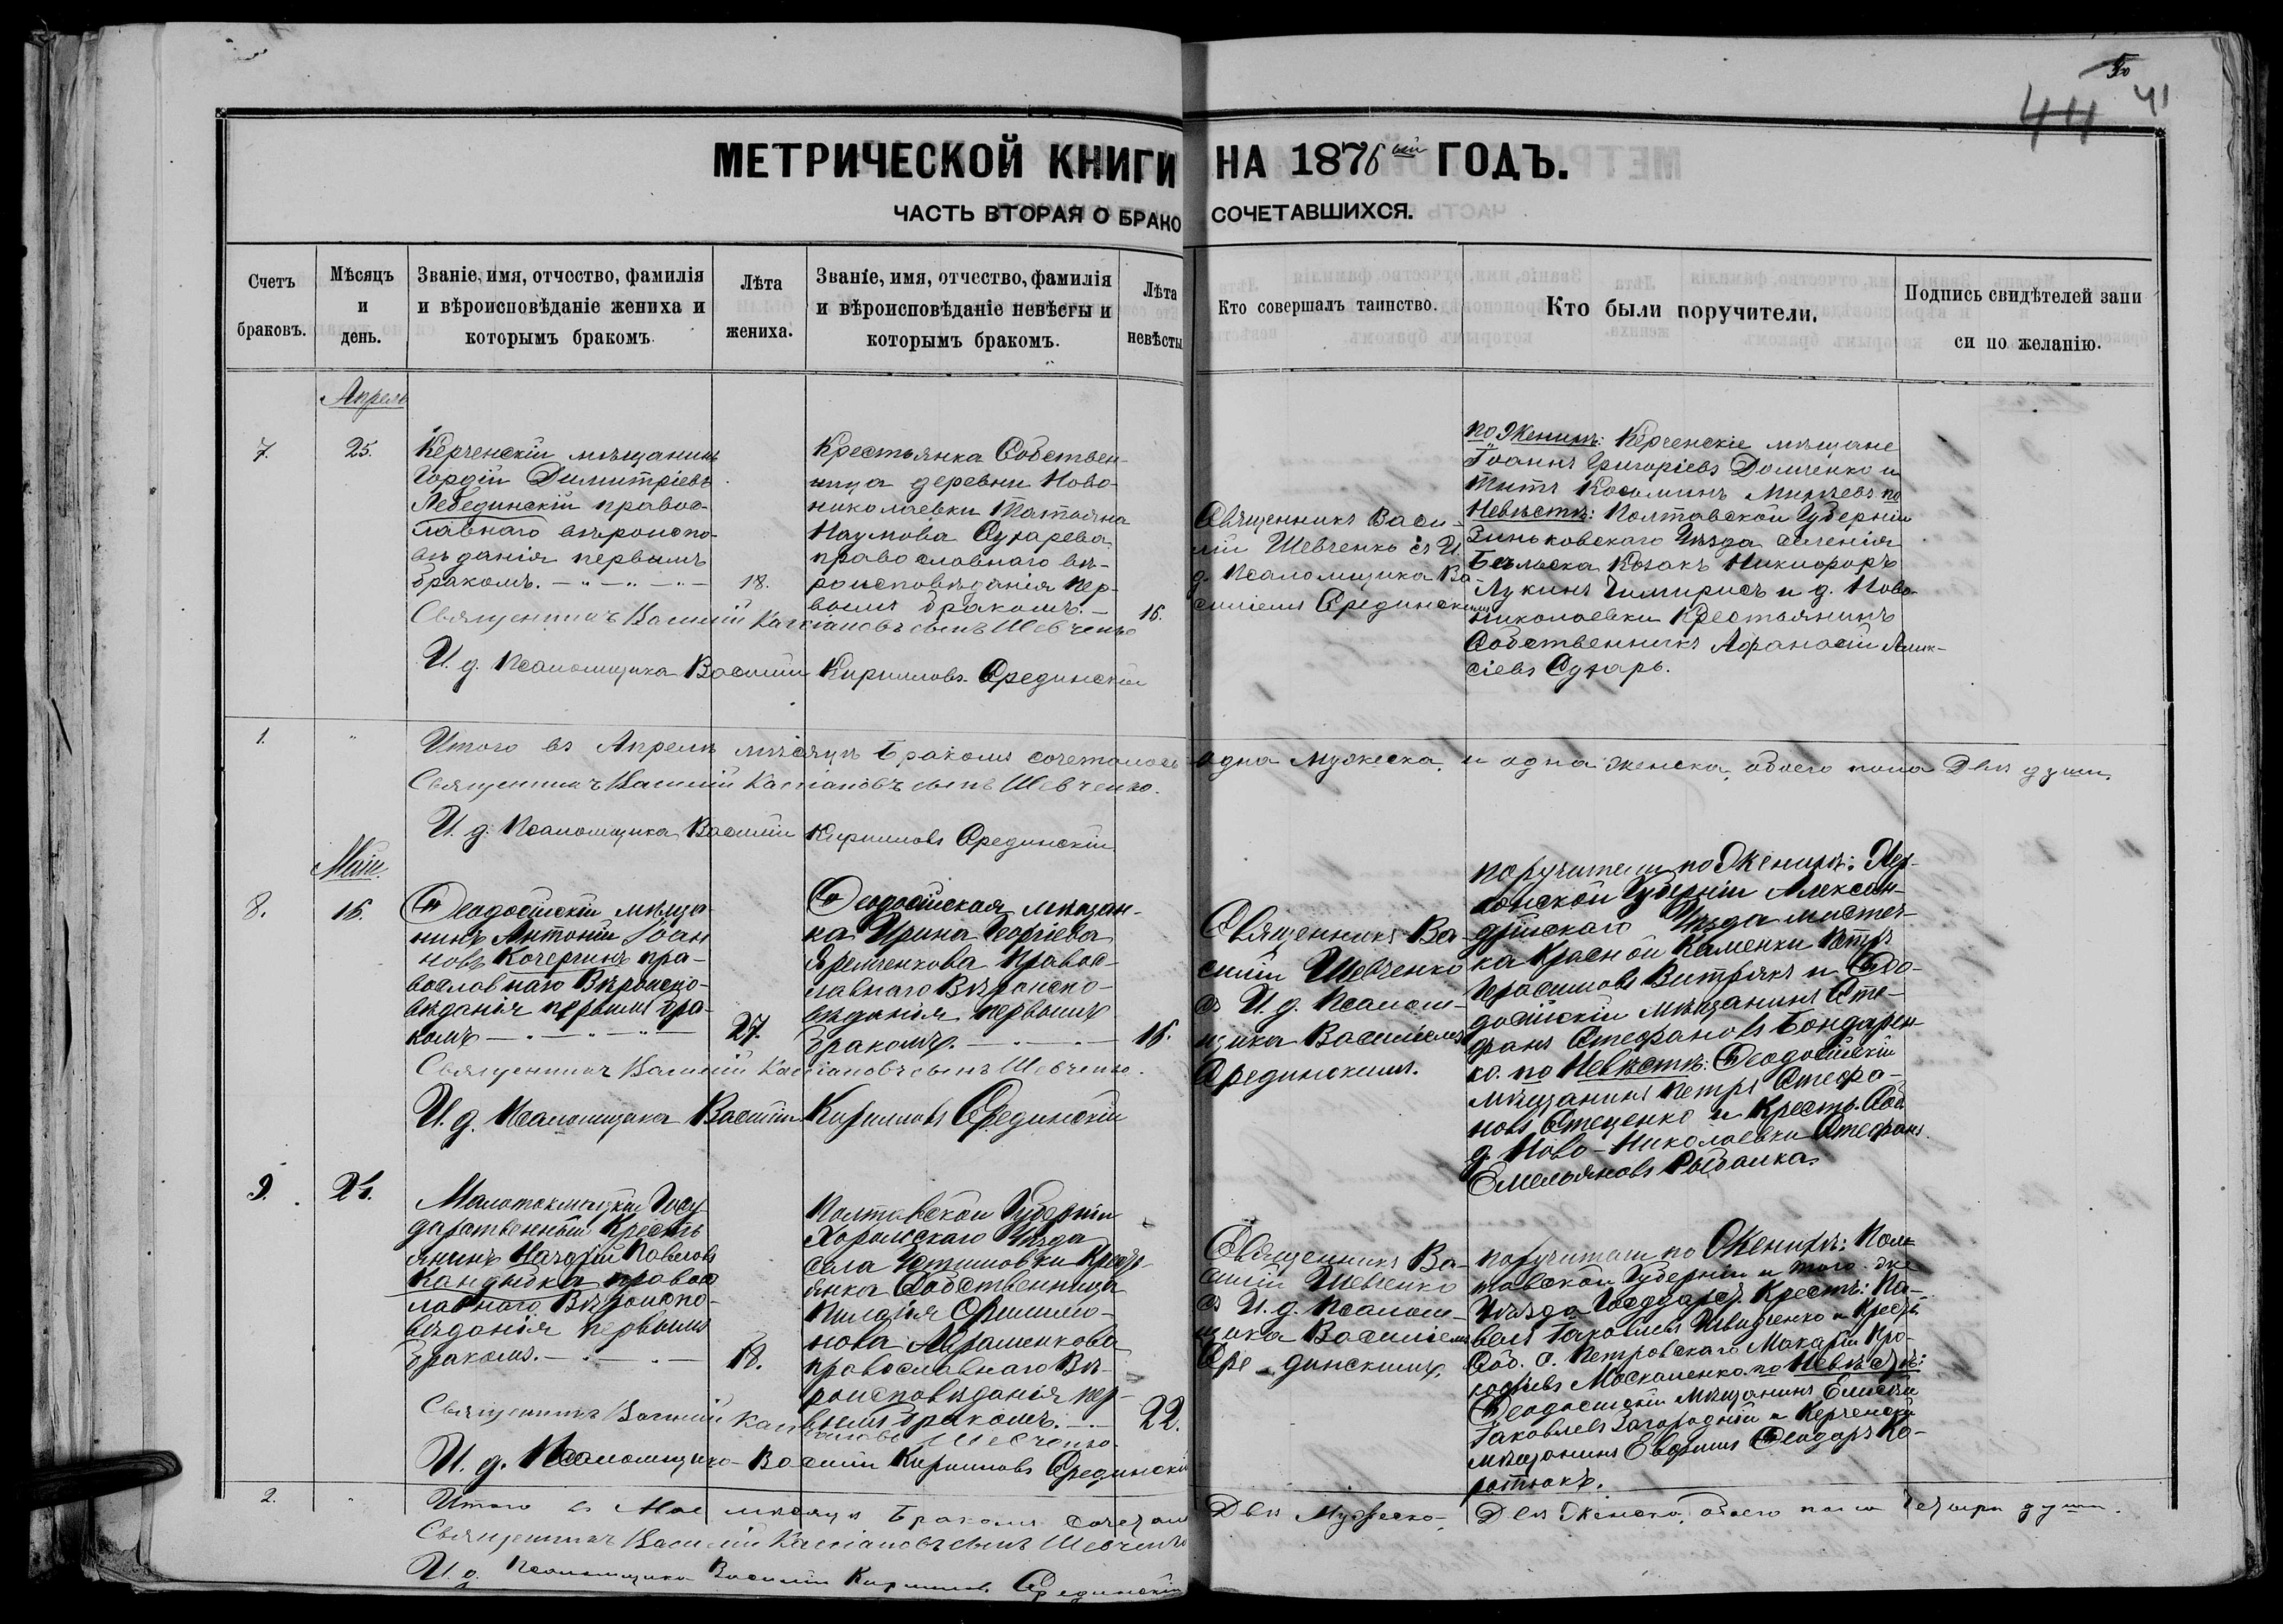 44
41
МЕТРИЧЕСКОЙ КНИГИ НА 1876ый ГОДЪ.
ЧАСТЬ ВТОРАЯ О БРАКОСОЧЕТАВШИХСЯ.
Счетъ браковъ.
Мѣсяцъ и день.
Званіе, имя, отчество, фамилія
и вѣроисповѣданіе жениха и
которымъ бракомъ.
Лѣта
жениха.
Званіе, имя, отчество, фамилія
и вѣроисповѣданіе невѣсты и
которымъ бракомъ.
Лѣта
невѣсты
Кто совершалъ таинство.
Кто были поручители.
Подпись свидѣтелей запи
си по желанію.
Апрель
7.
25.
Керченскій мѣщанинъ
Гордій Димитріевъ
Лебединскій правос-
лавнаго вѣроиспо-
вѣданія первымъ
бракомъ.
18.
Крестьянка Собствен-
ница деревни Ново-
николаевки Татьяна
Наумова Сухарева
православнаго вѣ-
роисповѣданія пер-
вымъ бракомъ.
16.
Священникъ Васи-
лій Шевченко съ И.
д. Псаломщика Ва-
силіемъ Срединскимъ
по Женихѣ: Керченскіе мѣщане
Іоаннъ Григоріевъ Домченко и
Титъ Косьминъ по
Невѣстѣ: Полтавской Губерніи
Зиньковскаго Уѣзда
Козакъ Никифоръ
Лукинъ и д. Ново-
николаевки Крестьянинъ
Собственникъ Афанасій Алек-
сіевъ
Священникъ Василій Кассіановъ сынъ Шевченко
И. д. Псаломщика Василій Кирилловъ Срединскій
1.
Итого въ Апрелѣ мѣсяцѣ Бракомъ сочеталось одна Мужеска, и одна Женска, обоего пола Двѣ души.
Священникъ Василій Кассіановъ сынъ Шевченко.
И. д. Псаломщика Василій Кирилловъ Срединскій
Маій.
8.
16.
Ѳеодосійскій мѣща-
нинъ Антоній Іоан
новъ Кочергинъ пра-
вославнаго Вѣроиспо-
вѣданія первымъ бра-
комъ
27.
Ѳеодосійская мѣщан-
ка Ирина Георгіева
Яремченкова Правос-
лавнаго Вѣроиспо-
вѣданія первымъ
бракомъ.
16.
Священникъ Ва-
силій Шевченко
съ И. д. Псалом-
щика Василіемъ
Срединскимъ.
поручители по Женихѣ: Хер-
сонской Губерніи Алексан-
дрійскаго Уѣзда мѣстеч-
ка Красной Каменки Петръ
Герасимовъ Витрякъ и Ѳео-
досійскій мѣщанинъ Сте-
фанъ Стефановъ Бондарен-
ко. по Невѣстѣ: Ѳеодосійскій
мѣщанинъ Петръ Стефа-
новъ Стеценко и Кресть. Соб.
д. Ново-Николаевки Стефанъ
Емельяновъ Рыбалка.
Священникъ Василій Кассіановъ сынъ Шевченко.
И. д. Псаломщика Василій Кирилловъ Срединскій
9.
Малотокмацкій Госу
дарственный Кресть
янинъ Назарій Павловъ
Кандыбка правос
лавнаго Вѣроиспо-
вѣданія первымъ
бракомъ.
18.
Полтавской Губерніи
Хорольскаго Уѣзда
села Устимовки Крест-
янка Собственница
Пилагія
нова Абраменкова
православнаго Вѣ-
роисповѣданія пер-
вымъ бракомъ.
22.
Священникъ Ва-
силій Шевченко
съ И. д. Псалом-
щика Василіемъ
Сре-динскимъ.
поручители по Женихѣ: Пол-
тавской Губерніи и того-же
Уѣзда Государст. Крестъ: Па-
велъ Іаковлевъ и Крест.
Соб. с. Петровскаго Макарій
Москаленко по Невѣстѣ:
Ѳеодосійскій Мѣщанинъ Елисей
Іаковлевъ Загородній и Керченскій
мѣщанинъ Евфимъ Ѳеодоръ Ко-
ротюкъ.
Священникъ Василій Кассіановъ Шевченко.
И. д. Псаломщика Василій Кирилловъ Срединскій
2.
Итого въ Мае мѣсяцѣ Бракомъ сочетал Двѣ Мужеско, Двѣ Женско, обоего пола четыри души.
Священникъ Василій Кассіановъ сынъ Шевченко
И. д. Псаломщика Василій Кирилловъ Срединскій